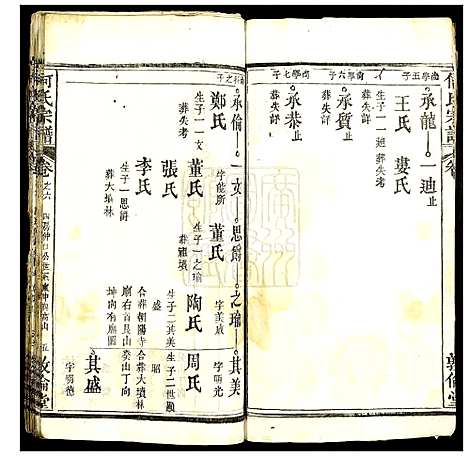 何氏宗譜
卷
敦倫堂
尚學五子
承龍 一迪 止
王氏 婁氏
葬失考
尚學六子
承質 止
葬失考
尚學七子
承恭 止
葬失考
之子
承倫 一文 思爵 之瑜 其美
鄭氏 董氏 董氏 陶氏 周氏
生子一一文
葬失考
字能所
字明光
張氏
生子一之瑜
葬
生子二其美
其盛
李氏
生子一思爵
葬大墳林
合葬朝陽寺
廟右首長山
合葬大墳林
癸山丁向
其盛
字明德
何氏宗譜
卷之六
五
敦倫堂